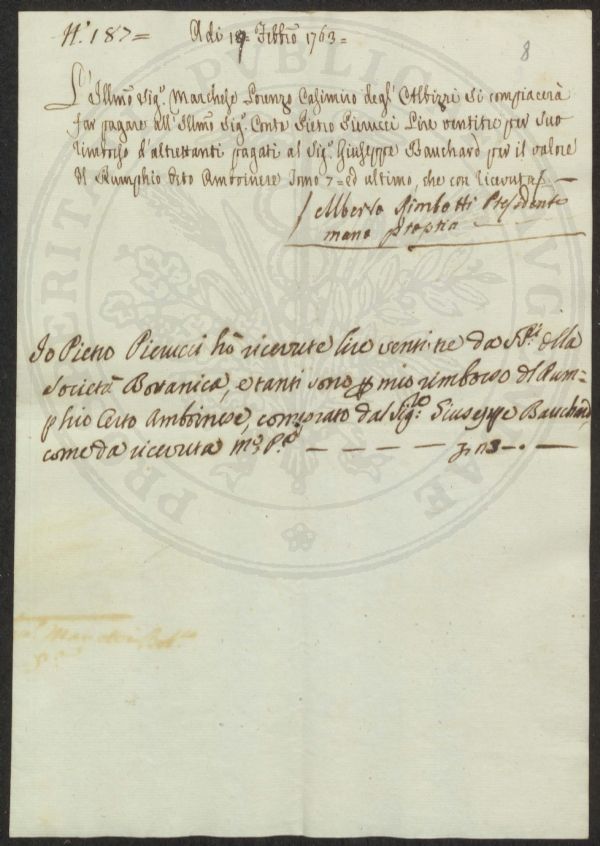 N.° 187=   Adi 19 Febbrô 1763=
8
L'Illmô Sig.r Marchese Lorenzo Casimiro degl' Albizzi si compiacerà
far pagare all' Illmô Sig.r Conte Pietro Pierucci Lire ventitre per suo
rimborso d'altrettanti pagati al Sig.r Giuseppe Bauchard per il valore
del Rumphio Orto Amboinese Tomo 7= ed ultimo, che con ricevuta
Alberto Rimbotti Presidente
mano propria
Io Pietro Pierucci hò ricevute lire ventitre da della
Società Botanica, e tanti sono mio rimborso del Rum-
phio Orto Amboinese, comprato dal Sig.o Giuseppe Bauchard,
come da ricevuta m.o P.a — — — — — 23 — . —
PUBLICAE